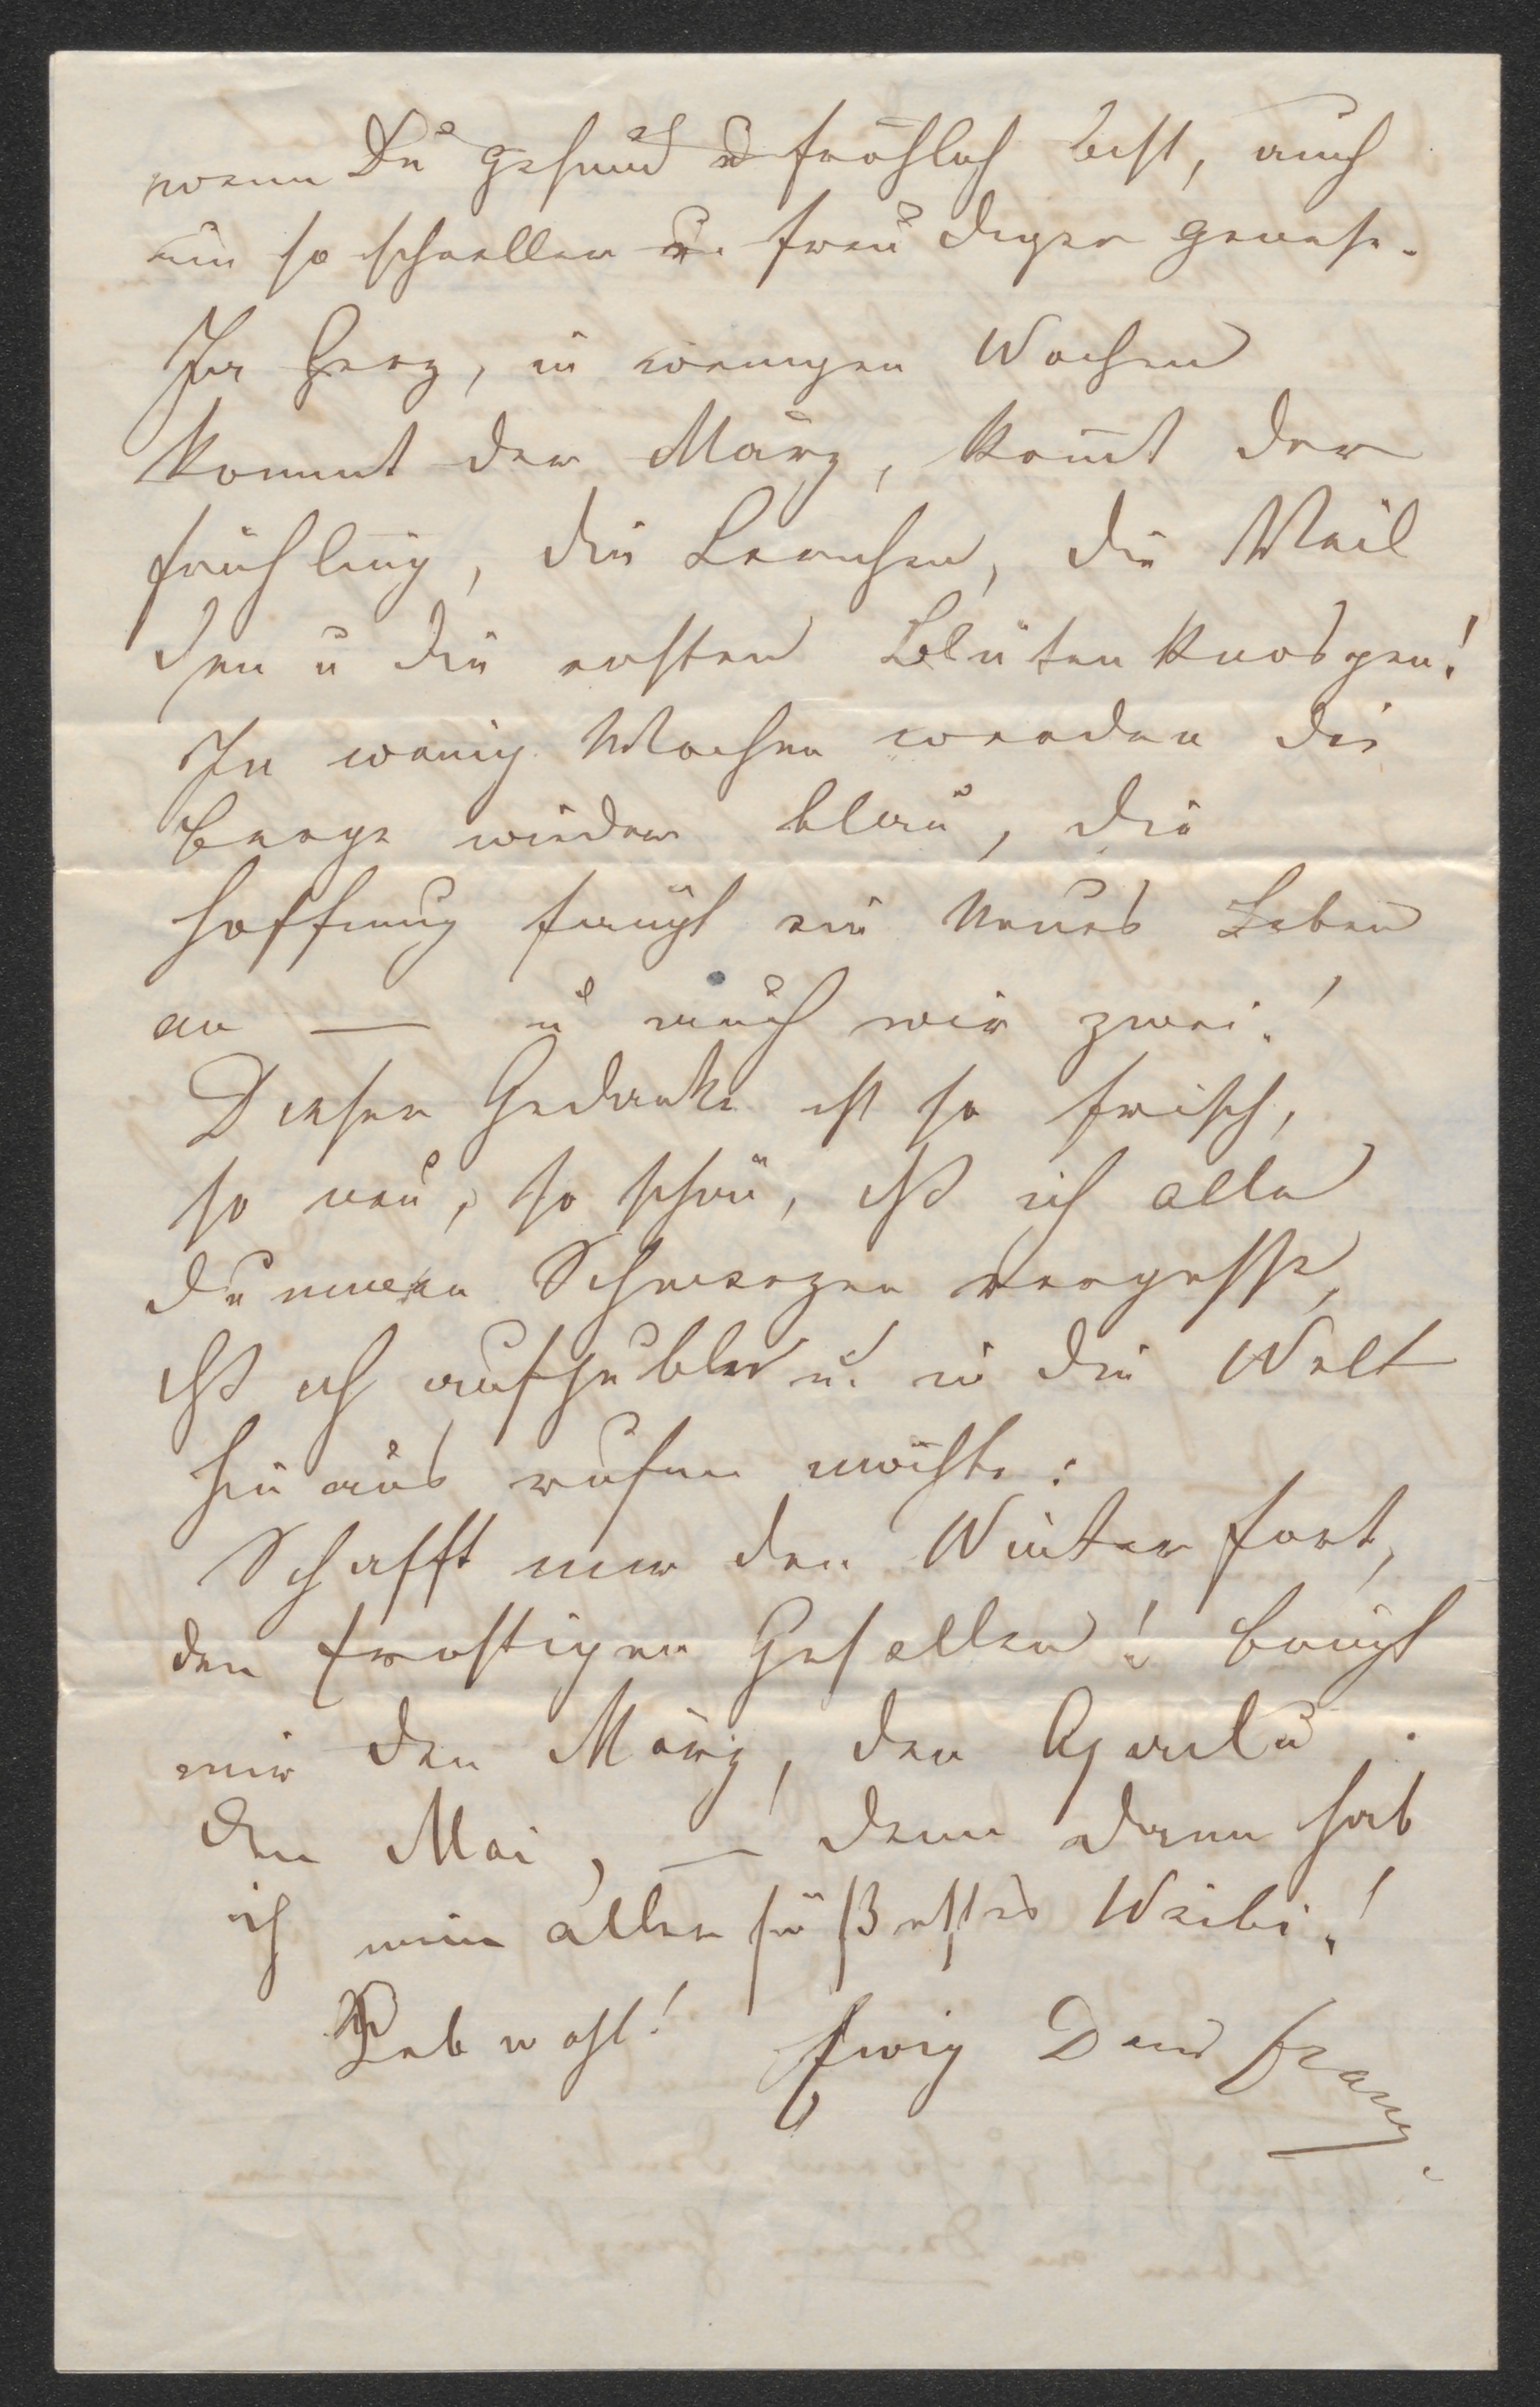 wenn Du gesund u fröhlich bist, auch
um so schneller u. freudiger genese.
Ja Herz, in wenigen Wochen
kommt der März, kom̄t der
Frühling, die Lerchen, die Veil
chen u die ersten Blüten knospen!
In wenig Wochen werden die
Berge wieder blau, die
Hoffnung fängt ein neues Leben
an — u auch wir zwei!
Dieser Gedanke ist so frisch,
so neu, so schön, dß ich alle
dummen Schmerzen vergesse,
dß ich aufjubeln u. in die Welt
hinaus rufen möchte:
Schafft mir den Winter fort,
den frostigen Gesellen! bringt
mir den März, den April u
den Mai, — denn dann hab
ich mein aller süßestes Weibi!
Leb wohl! Ewig Dein Franz.